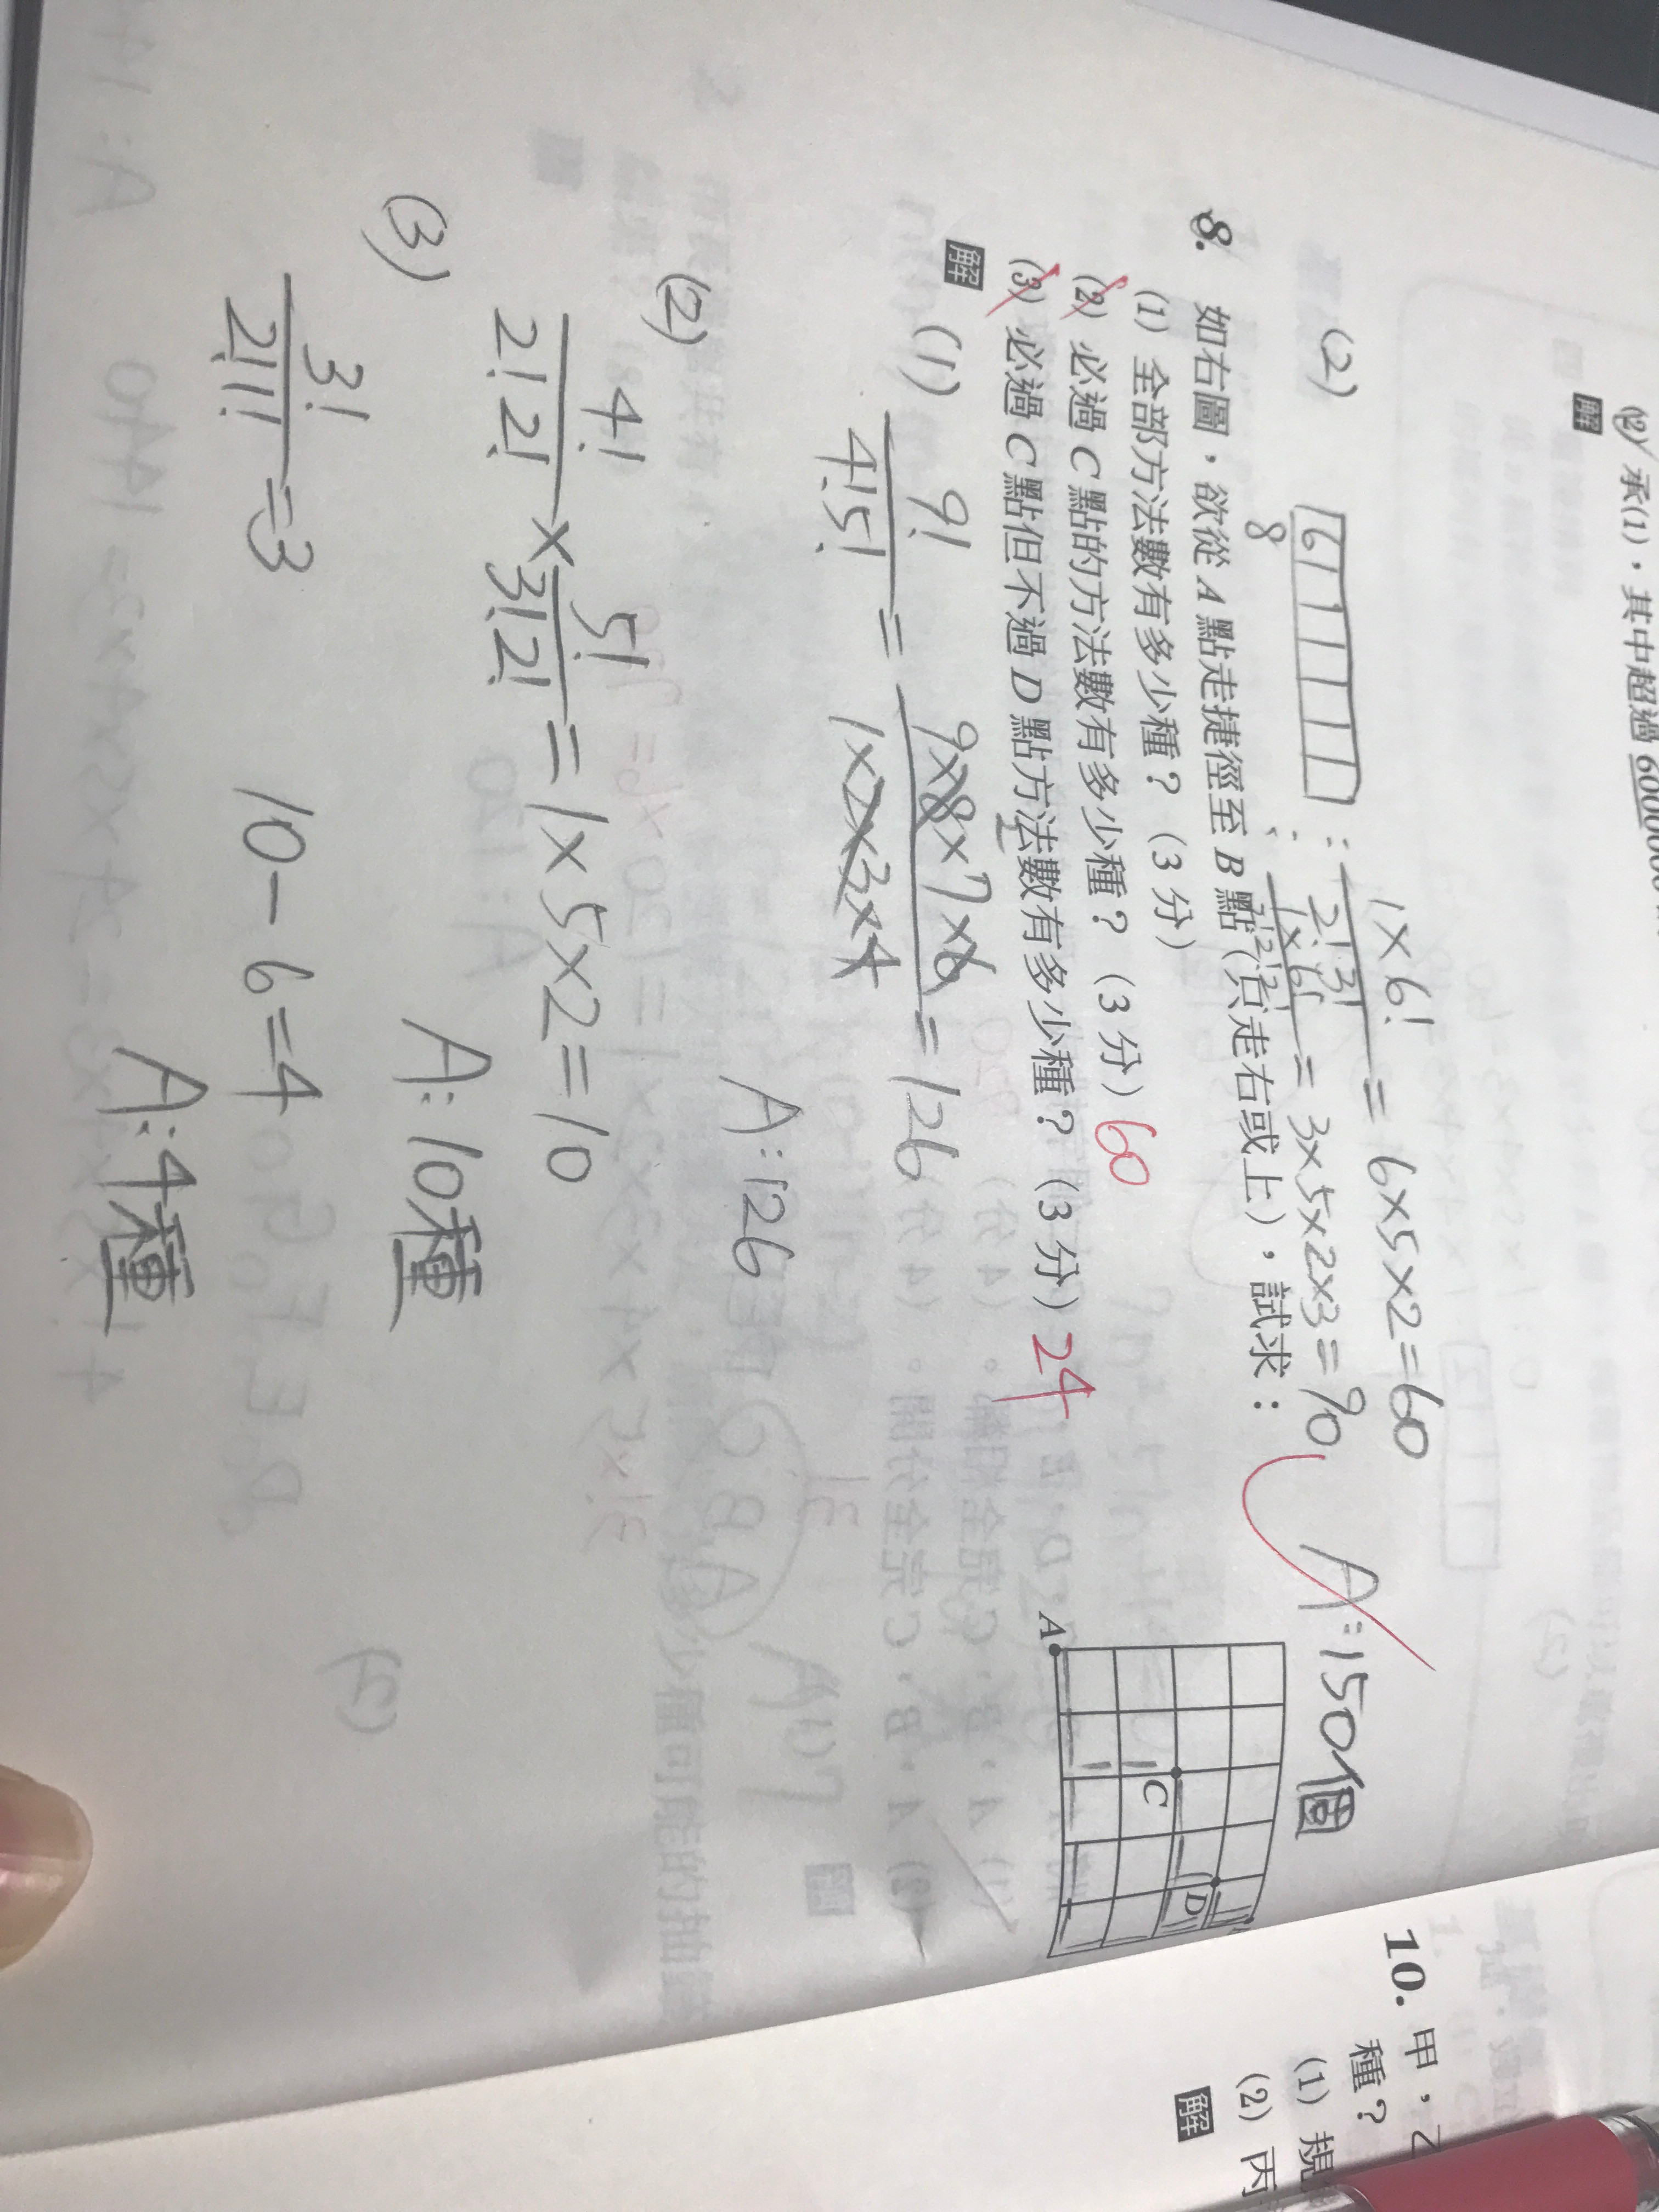 (2) 承(1),其中超過 600000
解
1×6!
(2) 6 1 1 : ――― = 6×5×2=60
2! 3!
1×6!
8 : ――― = 3×5×2×3=90 A:150個
2!2!2!
8. 如右圖,欲從 A 點走捷徑至 B 點(只走右或上),試求:
(1) 全部方法數有多少種?(3 分)
(2) 必過 C 點的方法數有多少種?(3 分) 60
(3) 必過 C 點但不過 D 點方法數有多少種?(3 分) 24
A
C
D
解 (1) 9!/4!5! = 9×8×7×6/1×2×3×4 = 126
A:126
(2) 4!/2!2! × 5!/3!2! = 1×5×2=10
A:10種
(3) 3!/2!1! =3 10-6=4
A:4種
10. 甲,乙
種?
(1) 規
(2) 丙
解